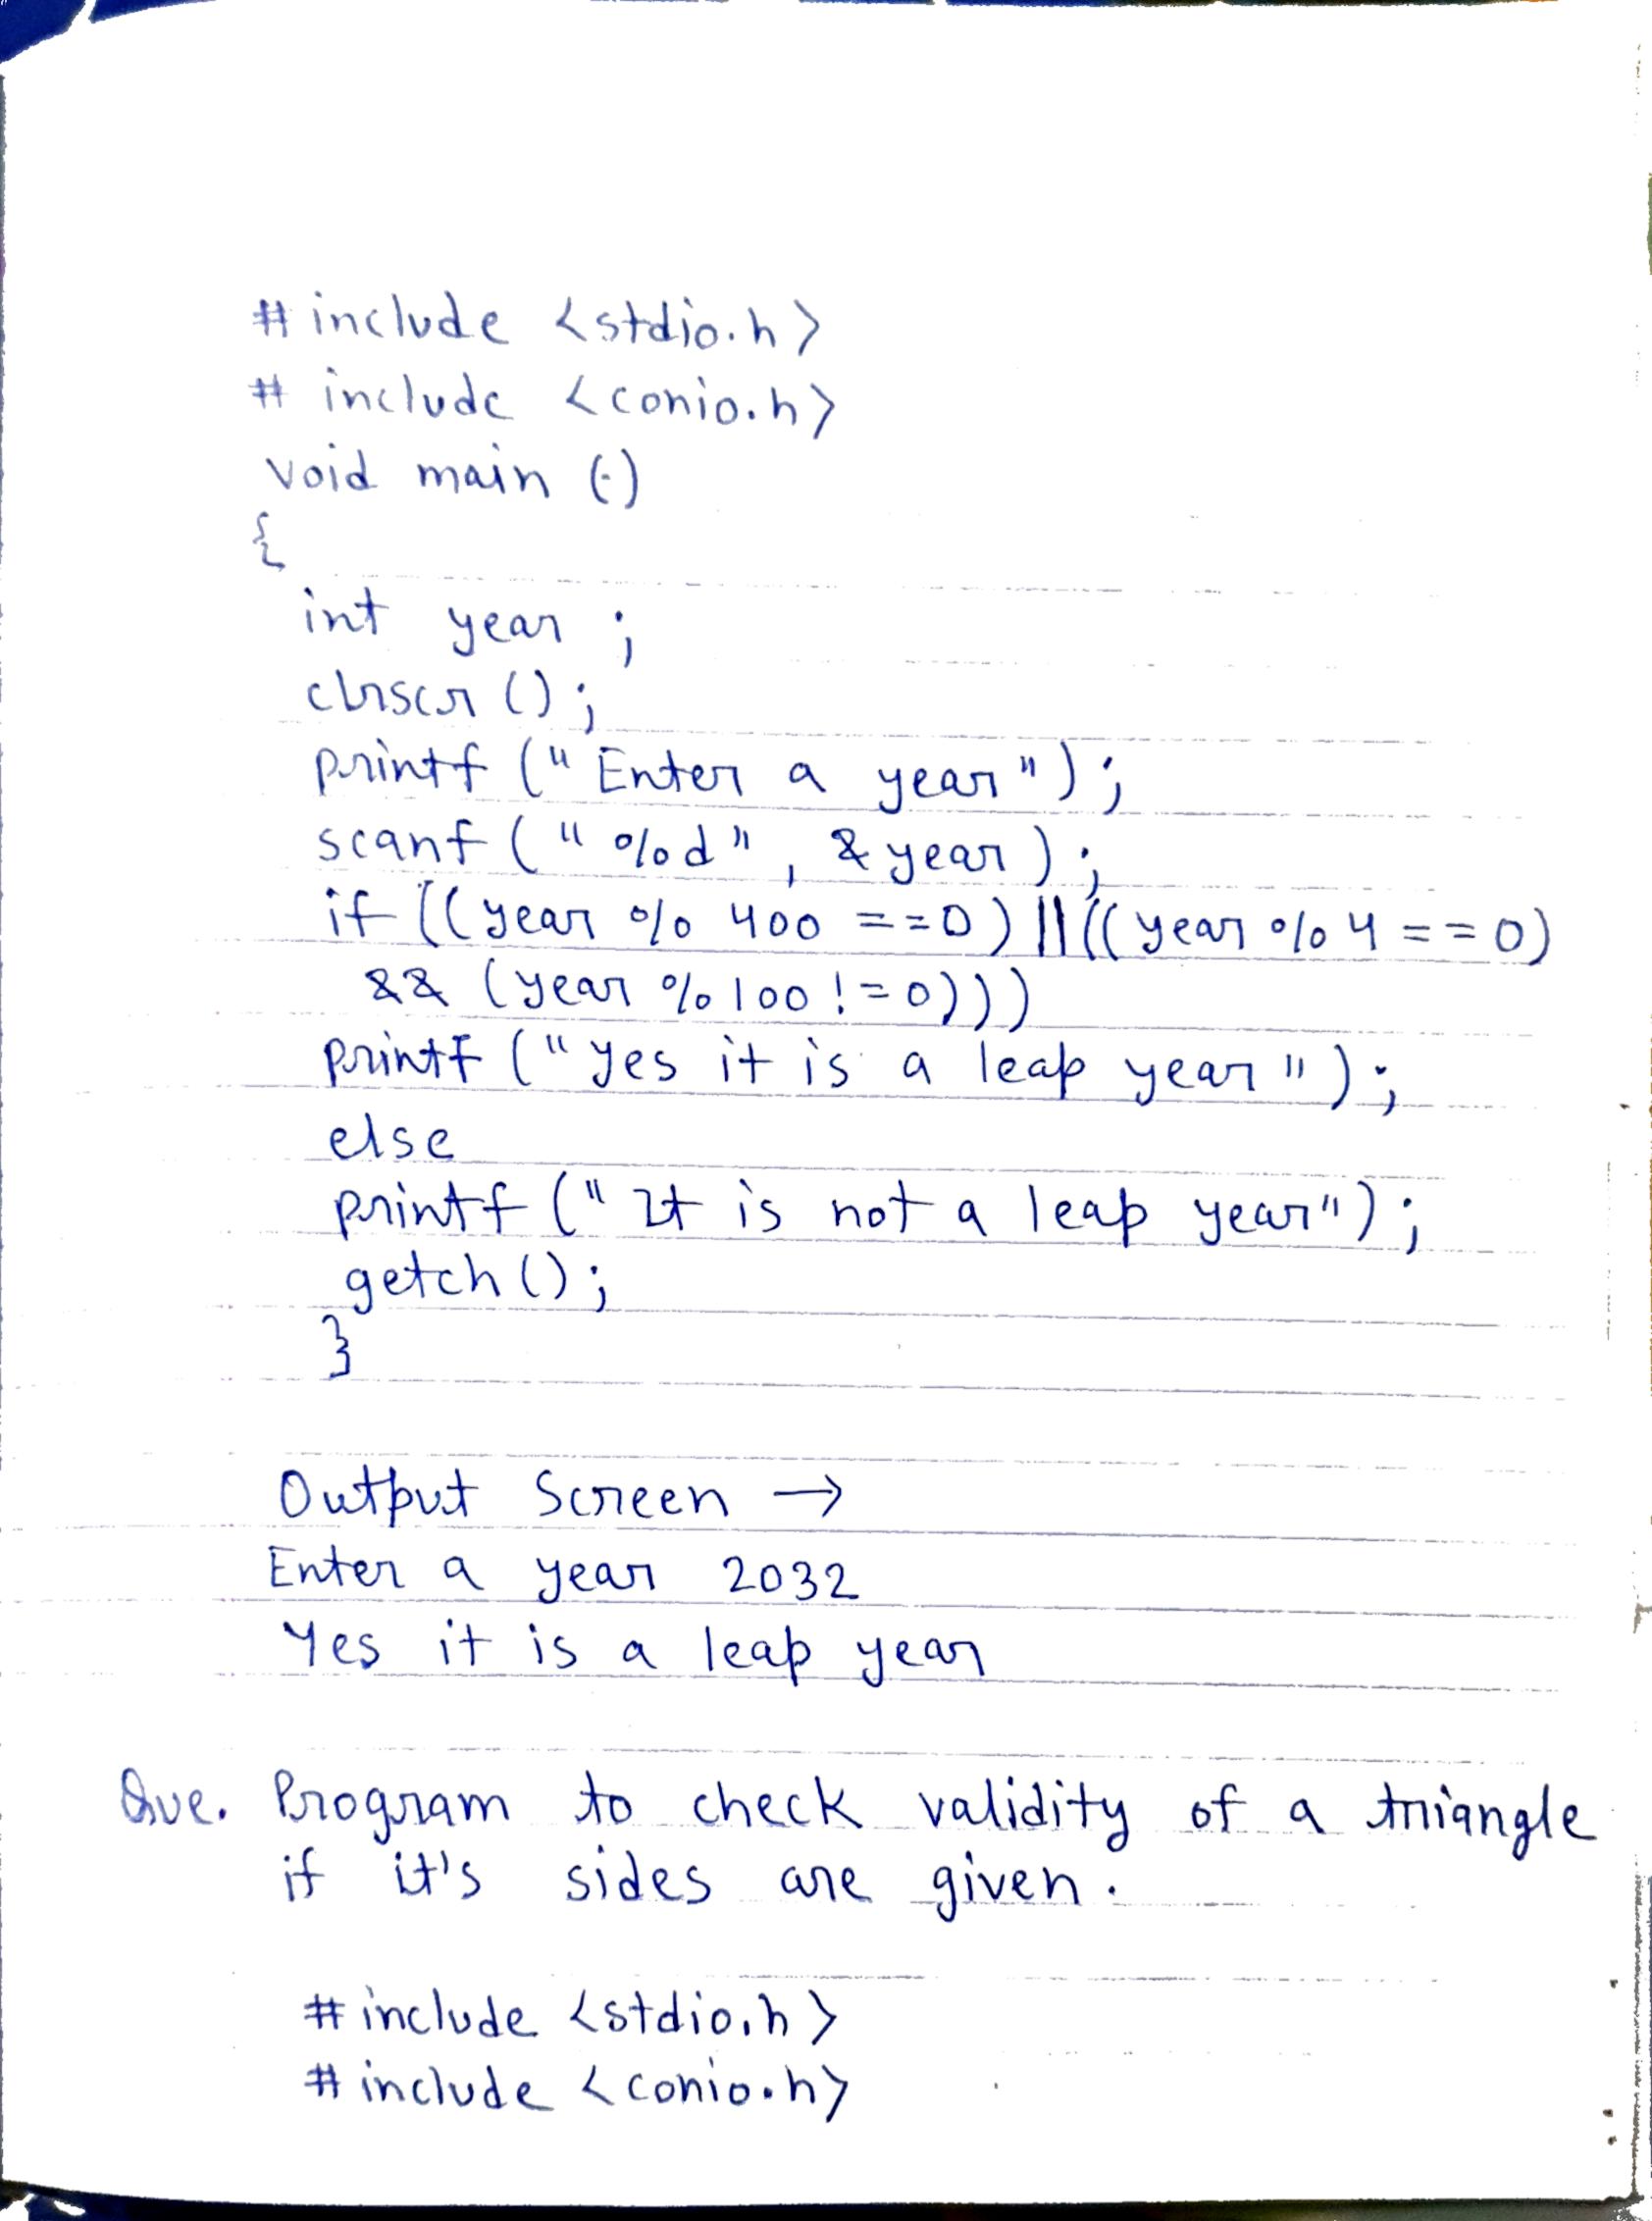 #include <stdio.h>
# include <conio.h>
void main ()
{
int year ;
clrscr ();
printf ("Enter a year");
scanf ("%d", &year);
if ((year % 400 ==0) ||((year %4 ==0)
&& (year %100 !=0)))
printf ("Yes it is a leap year");
else
printf ("It is not a leap year");
getch();
}
Output Screen →
Enter a year 2032
Yes it is a leap year
Que. Program to check validity of a triangle
if it's sides are given.
#include <stdio.h>
#include <conio.h>